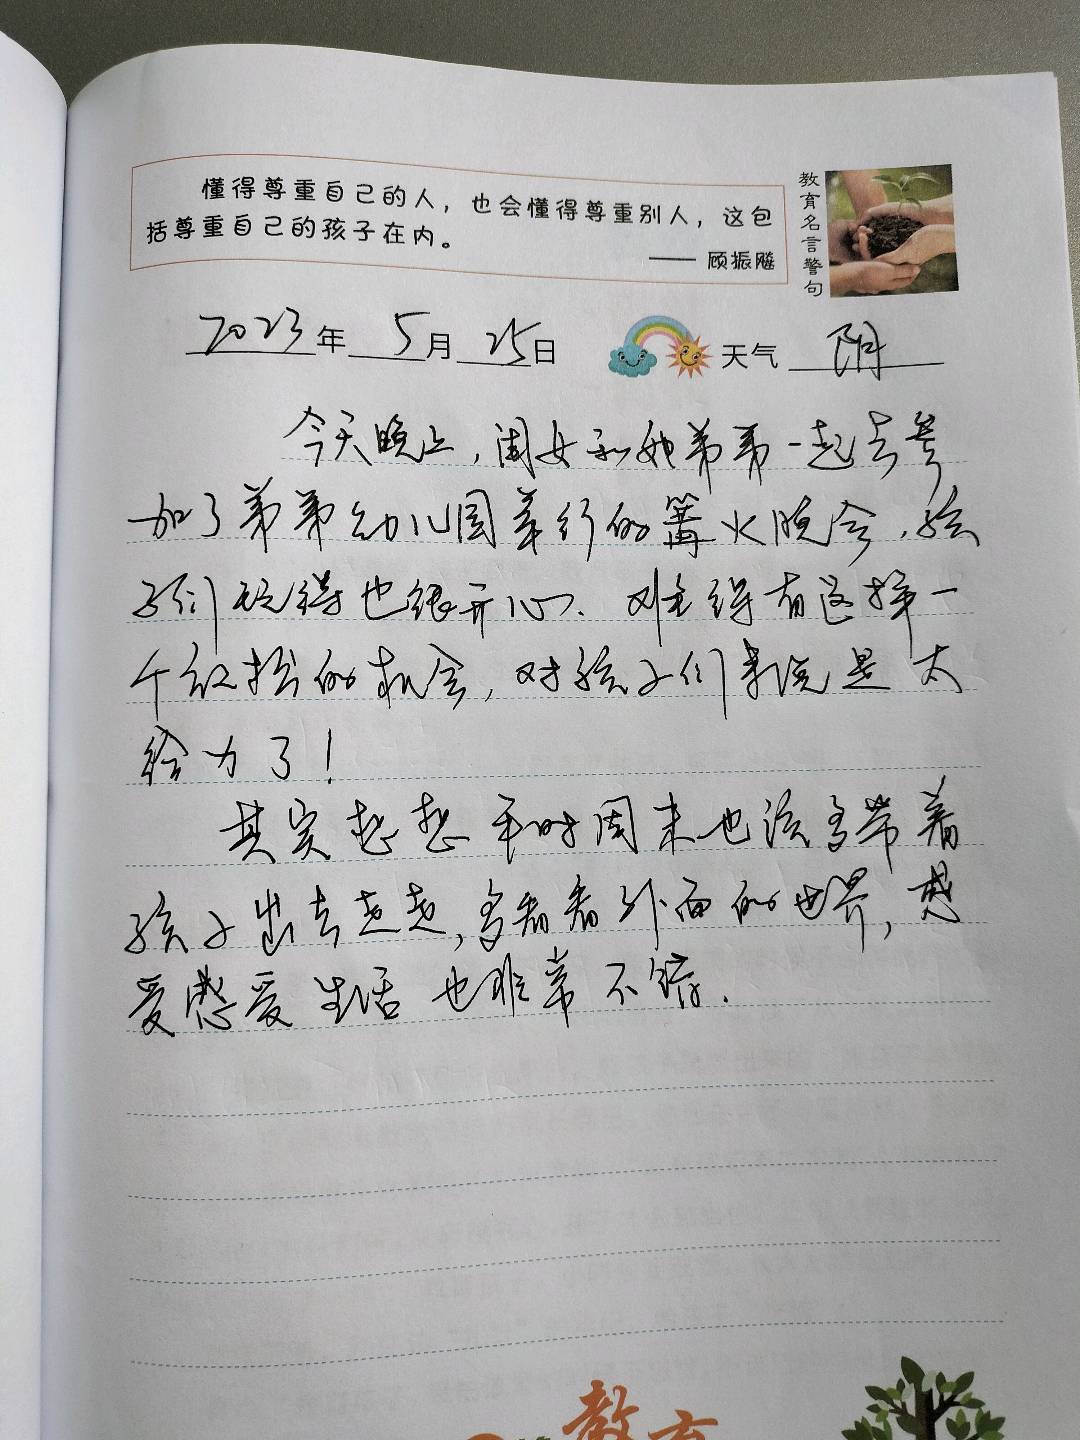 懂得尊重自己的人，也会懂得尊重别人，这包
括尊重自己的孩子在内。
—— 顾振飚
教育名言警句
2023年 5月 25日 天气 阴
今天晚上，闺女和她弟弟一起去参
加了弟弟幼儿园举行的篝火晚会，孩
子们玩得也很开心、难得有这样一
个放松的机会，对孩子们来说是太
给力了！
其实想想平时周末也该多带着
孩子出去走走，多看看外面的世界，感
受感受生活也非常不错．
教育